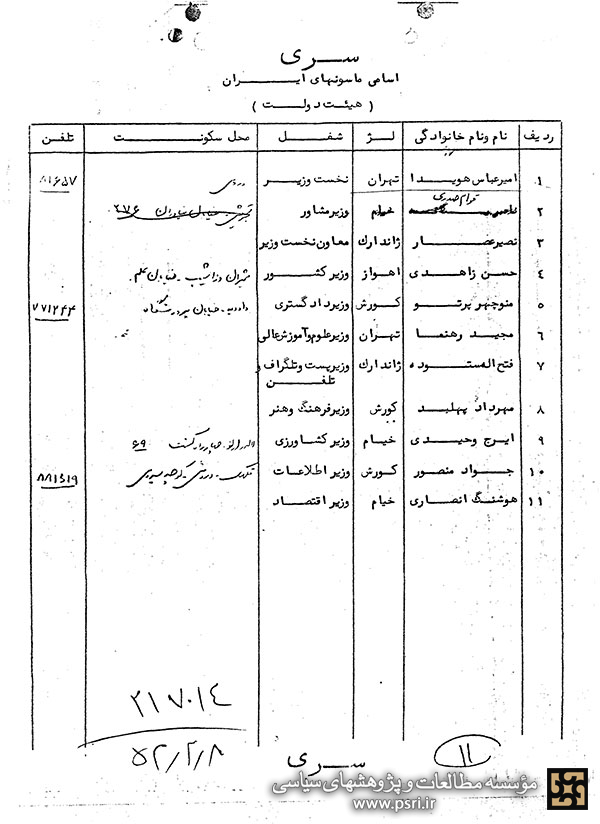 سری
اسامی ماسونهای ایران
( هیئت دولت )
ردیف نام ونام خانوادگی لژ شغل محل سکونت تلفن
۱ امیرعباس هویدا تهران نخست وزیر دروس ۸۱۶۵۷
۲ خیام وزیرمشاور
۳ نصیرعصار ژاندارك معاون نخست وزیر
۴ حسن زاهدی اهواز وزیر کشور شمران
۵ منوچهر پرتو کورش وزیردادگستری داودیه - خیابان ۷۷۱۲۴۴
۶ مجید رهنما تهران وزیرعلوم وآموزش عالی
۷ فتح اله ستوده ژاندارك وزیرپست وتلگراف و
تلفن
۸ مهرداد پهلبد کورش وزیرفرهنگ وهنر
۹ ایرج وحیدی خیام وزیر کشاورزی ۶۹
۱۰ جواد منصور کورش وزیر اطلاعات ۸۸۱۵۱۹
۱۱ هوشنگ انصاری خیام وزیر اقتصاد
۲۱۷۰۱۴
۵۲/۲/۸
سری
۱۱
مؤسسه مطالعات و پژوهشهای سیاسی
www.psri.ir